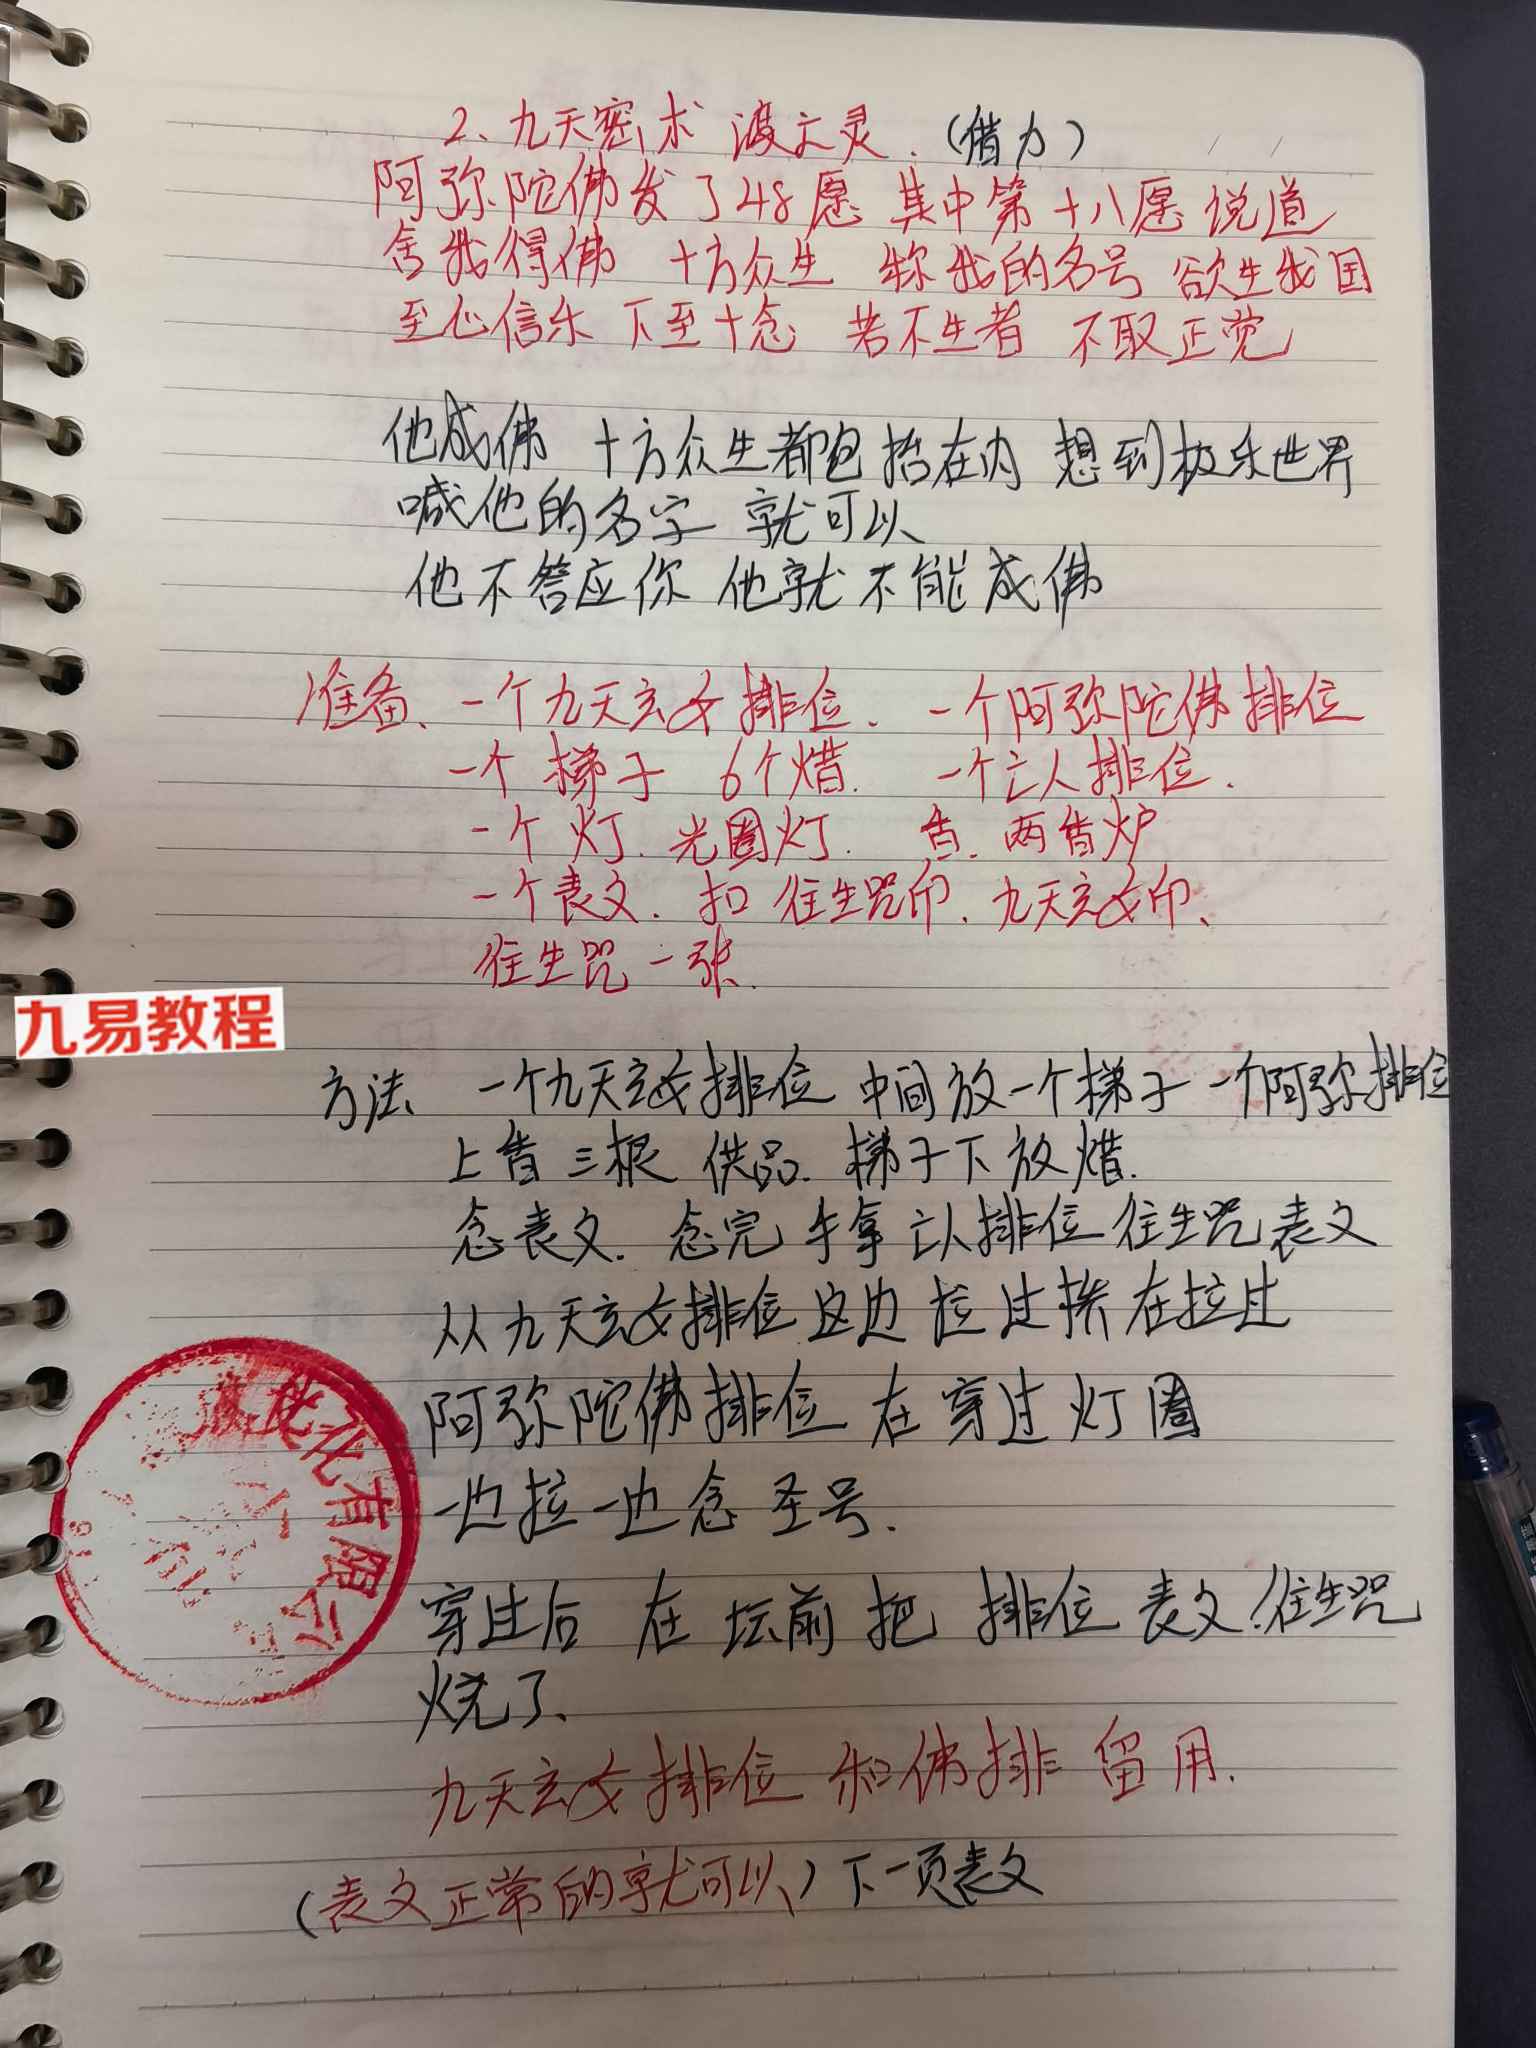 2、九天密术 渡亡灵.(借力)
阿弥陀佛发了48愿 其中第十八愿 说道
舍我得佛 十方众生 称我的名号 欲生我国
至心信乐 下至十念 若不生者 不取正觉
他成佛 十方众生都包括在内 想到极乐世界
喊他的名字 就可以
他不答应你 他就不能成佛
准备、一个九天玄女排位、一个阿弥陀佛排位
一个梯子 6个蜡. 一个亡人排位.
一个灯.光圈灯. 香.两香炉
一个表文.扣 往生咒印.九天玄女印、
往生咒一张.
九易教程
方法、一个九天玄女排位 中间放一个梯子 一个阿弥排位
上香三根 供品.梯子下放蜡.
念表文.念完手拿亡人排位往生咒表文
从九天玄女排位这边拉过 在拉过
阿弥陀佛排位 在穿过灯圈
一边拉一边念圣号.
穿过后 在坛前把 排位 表文.往生咒
烧了.
九天玄女排位 和佛排 留用.
(表文正常的就可以)下一页表文
化有限公